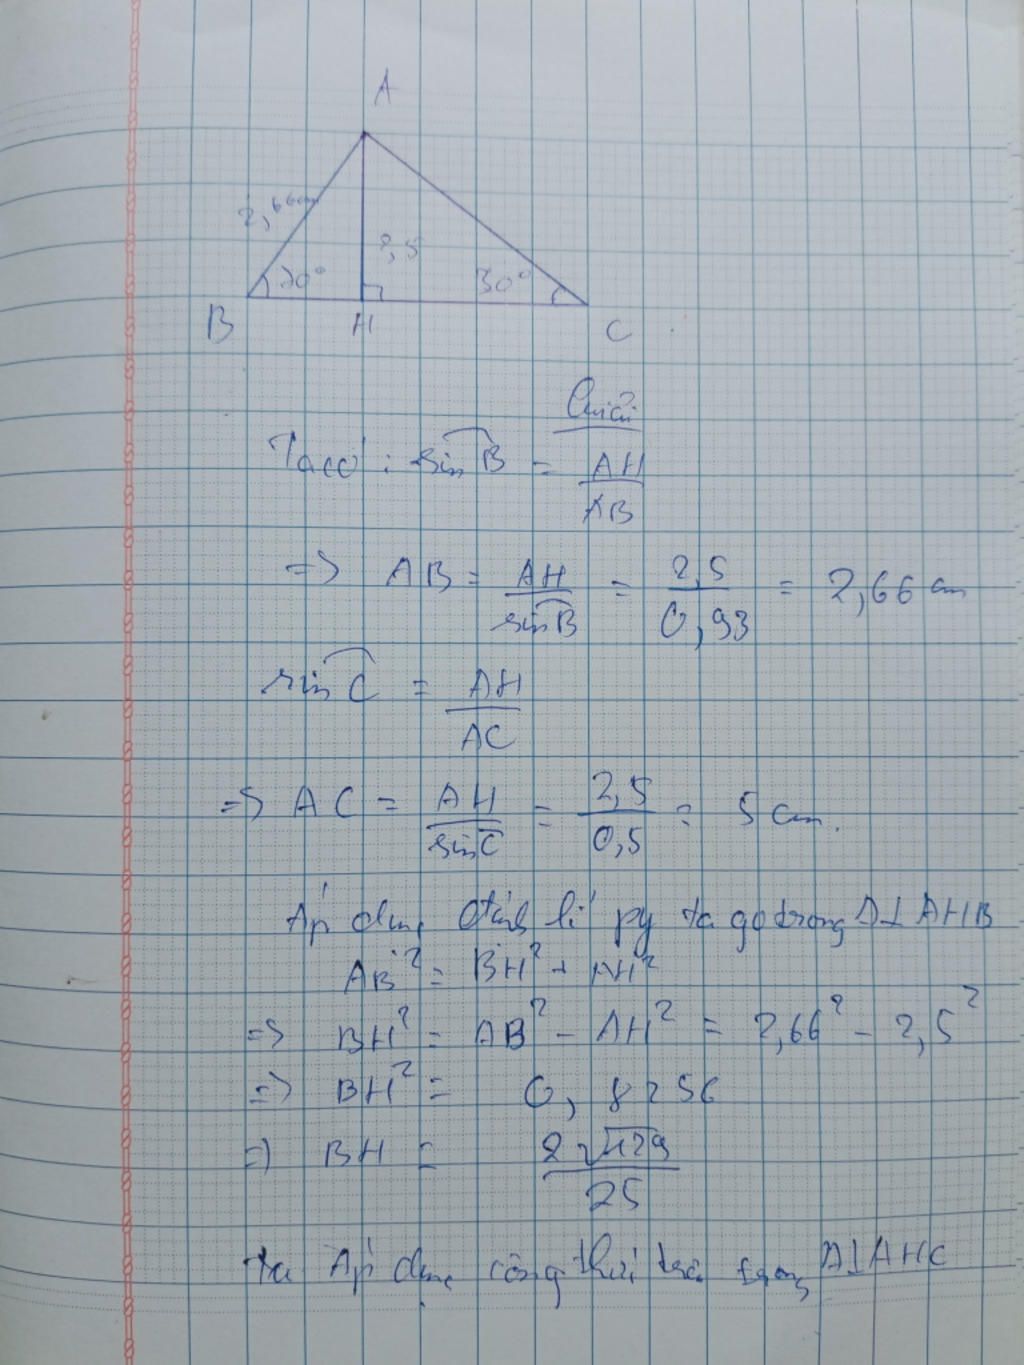 A
2,66cm
2,5
70°
30°
B
H
C
Giải
Ta có : sin B = AH / AB
=> AB = AH / sin B = 2,5 / 0,93 = 2,66 cm
sin C = AH / AC
=> AC = AH / sin C = 2,5 / 0,5 = 5 cm.
Áp dụng định lí py ta go trong Δ⊥ AHB
AB² = BH² + AH²
=> BH² = AB² - AH² = 2,66² - 2,5²
=> BH² = 0,8256
=> BH = 2√129 / 25
Ta Áp dụng công thức trên trong Δ⊥AHC